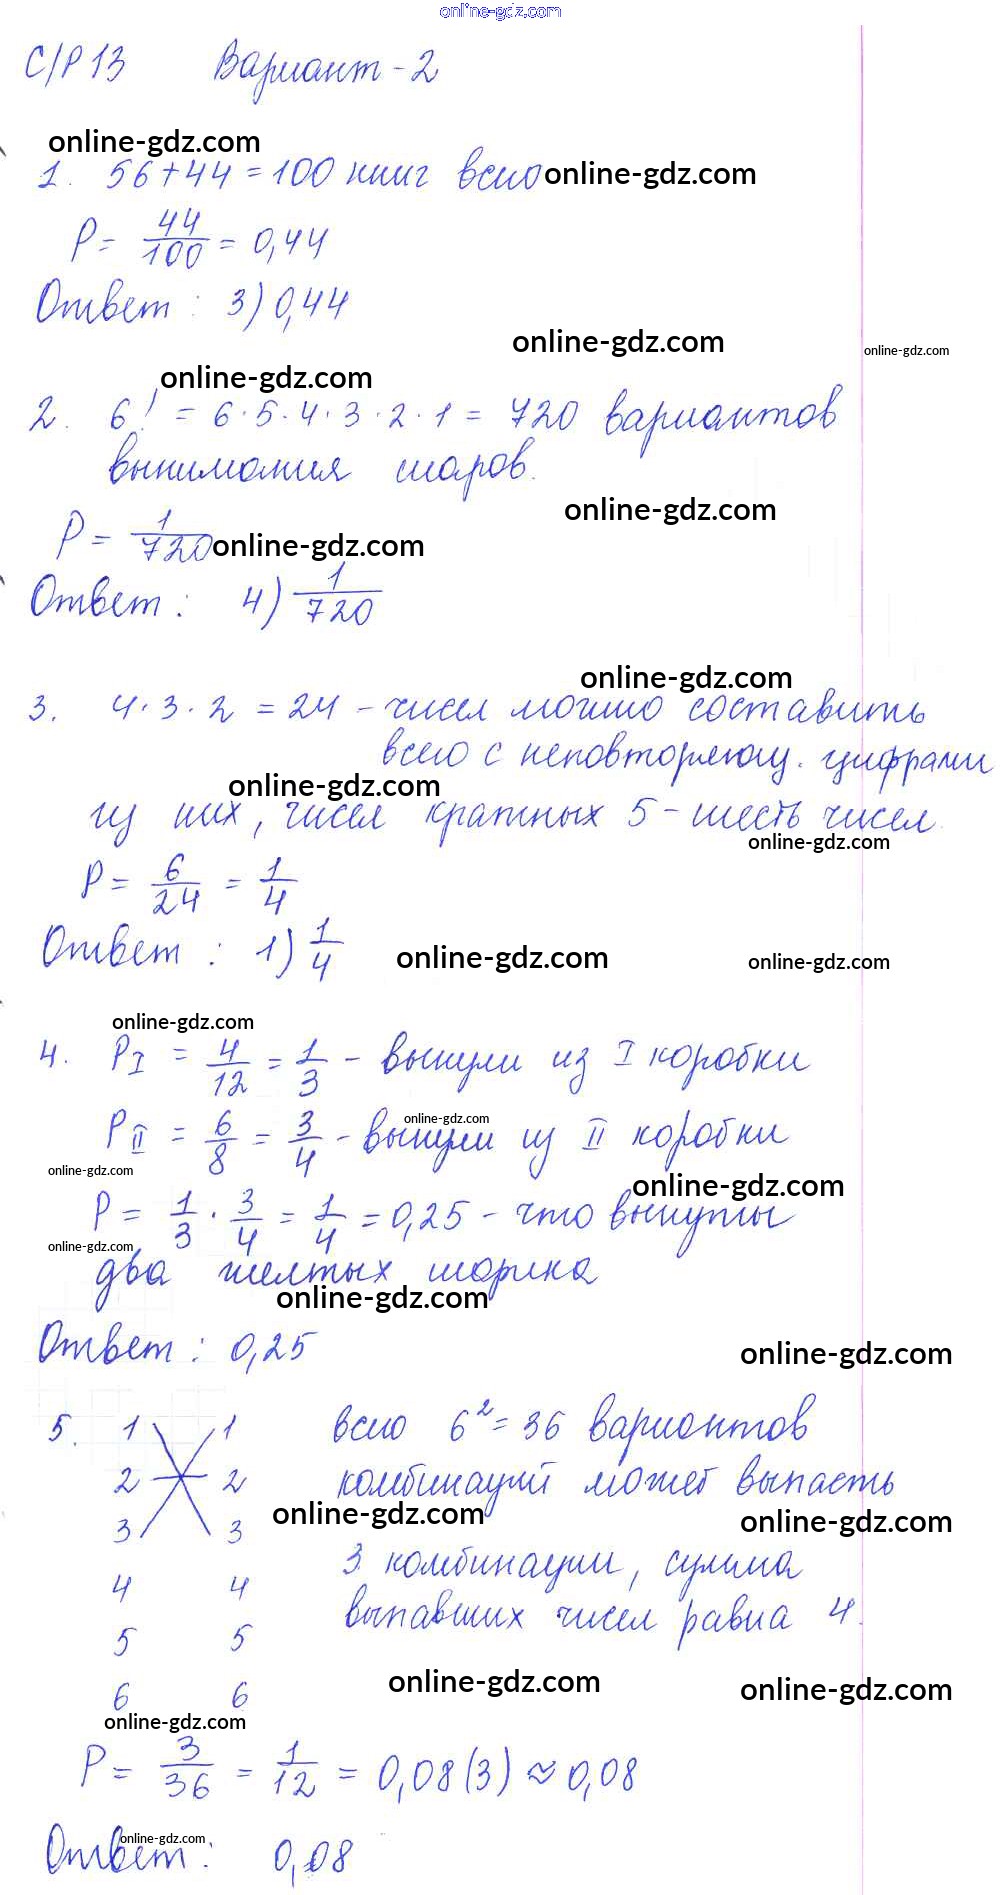 online-gdz.com
С/Р 13 Вариант-2
online-gdz.com
1. 56+44=100 книг всего online-gdz.com
P= 44/100 = 0,44
Ответ: 3) 0,44
online-gdz.com
online-gdz.com
online-gdz.com
2. 6! = 6·5·4·3·2·1 = 720 вариантов
вынимания шаров.
online-gdz.com
P = 1/720 online-gdz.com
Ответ: 4) 1/720
online-gdz.com
3. 4·3·2 = 24 - чисел можно составить
всего с неповторяющ. цифрами
online-gdz.com
из них, чисел кратных 5 - шесть чисел.
online-gdz.com
P = 6/24 = 1/4
Ответ: 1) 1/4
online-gdz.com
online-gdz.com
online-gdz.com
4. P I = 4/12 = 1/3 - вынули из I коробки
online-gdz.com
P II = 6/8 = 3/4 - вынули из II коробки
online-gdz.com
online-gdz.com
P = 1/3 · 3/4 = 1/4 = 0,25 - что вынуты
online-gdz.com
два желтых шарика
online-gdz.com
Ответ: 0,25
online-gdz.com
5. 1 1 всего 6² = 36 вариантов
2 2 комбинаций может выпасть
online-gdz.com
online-gdz.com
3 3
3 комбинации, сумма
4 4 выпавших чисел равна 4.
5 5
online-gdz.com
online-gdz.com
6 6
online-gdz.com
P = 3/36 = 1/12 = 0,08(3) ≈ 0,08
online-gdz.com
Ответ: 0,08